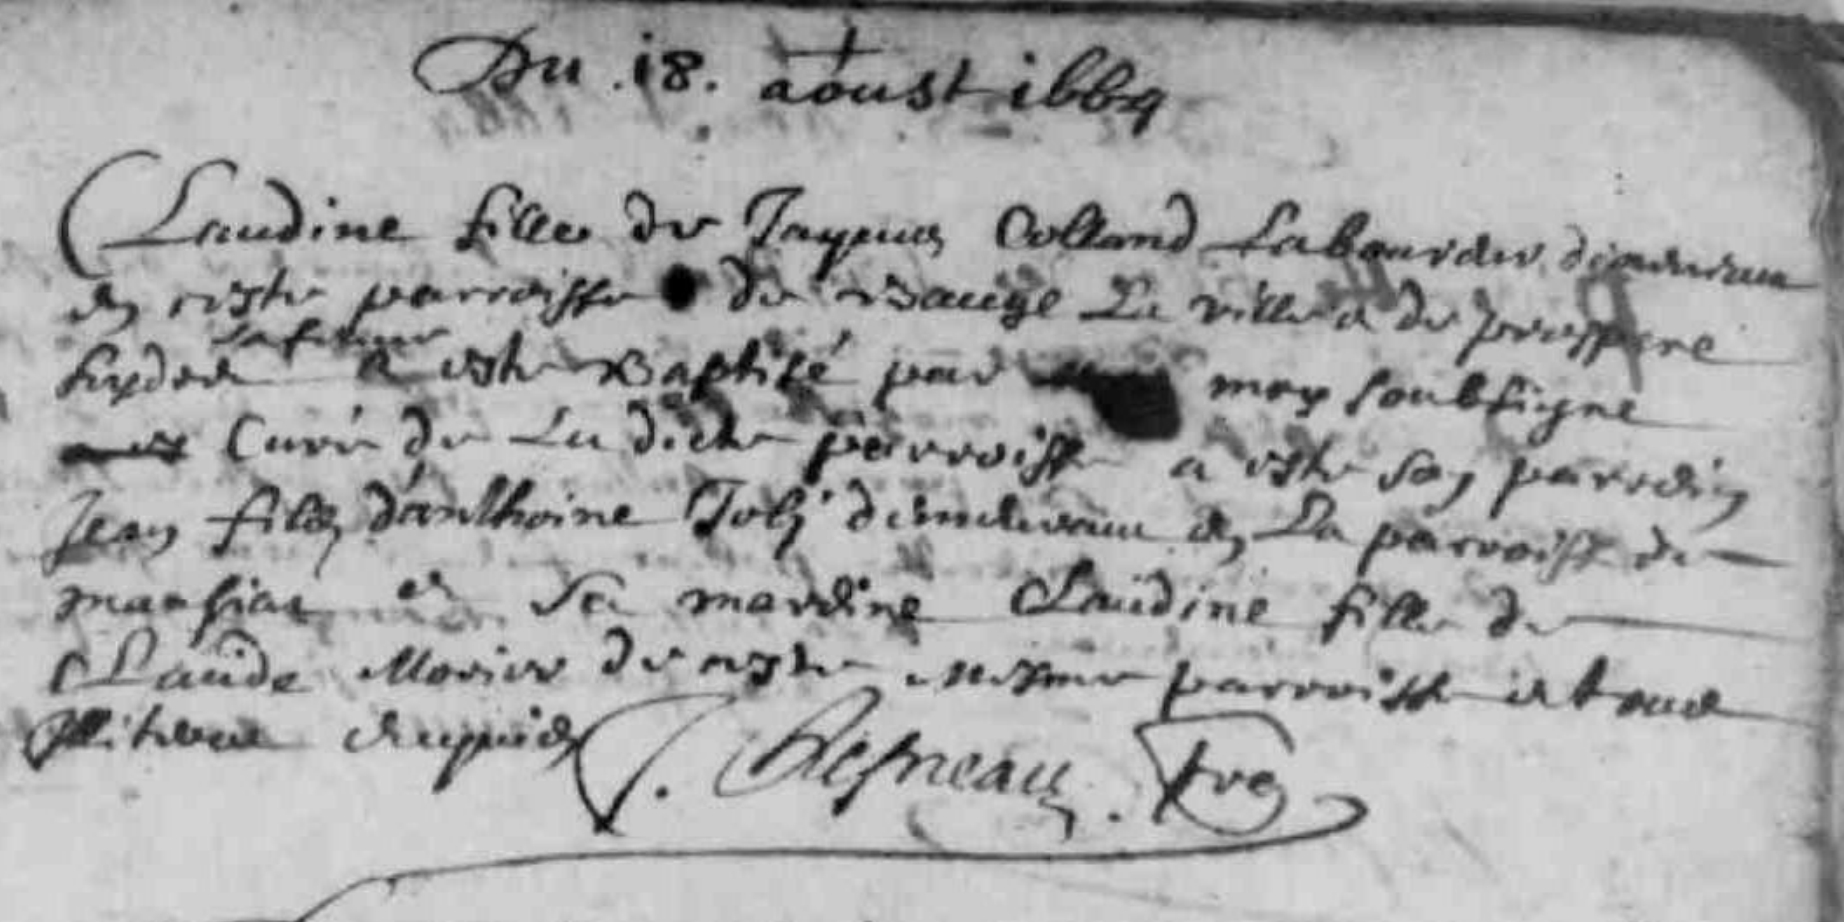 Du .i8. aoust i664
Claudine fille de Jaques Colland Laboureur demeurant
en ceste parroisse de Baugé La ville & de prospere
sa femme
a este Baptisé par moy soubsigne
Curé de La dicte parroisse a este son parrein
Jean filz d'anthoine Joly demeurant en La parroisse de
et sa mareine Claudine fille de
Claude Morier de ceste mesme parroisse et tous
illiteres J. Chesneau. Pre